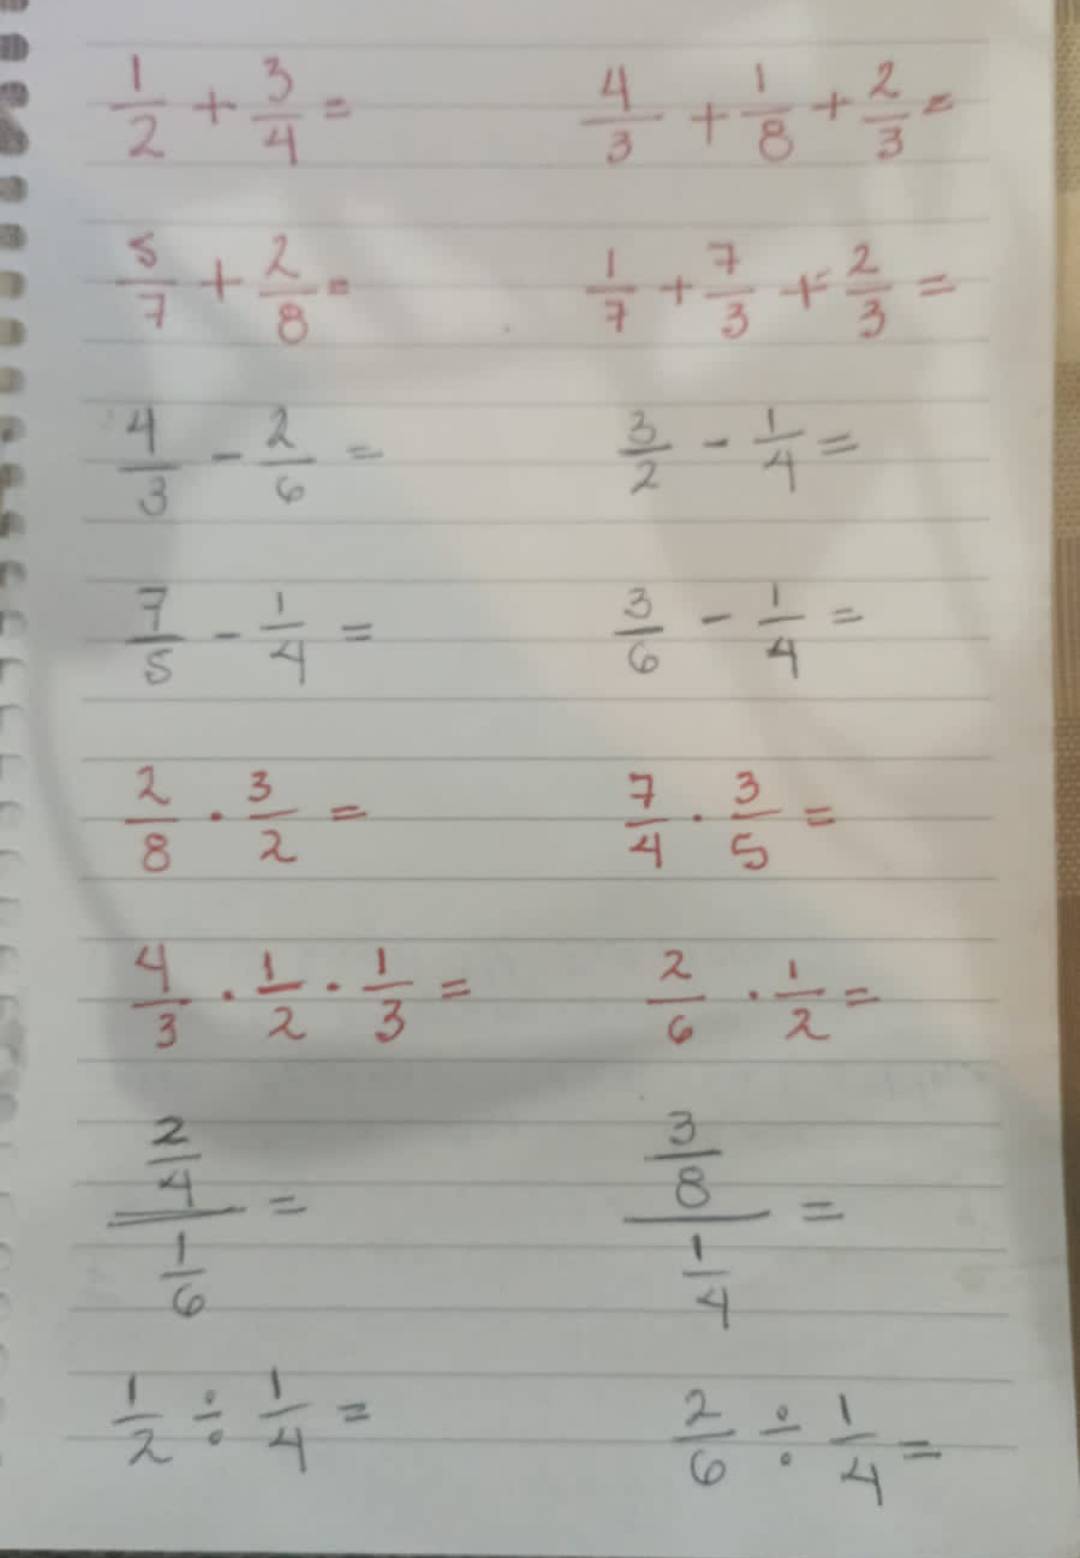 1/2 + 3/4 = 4/3 + 1/8 + 2/3 =
5/7 + 2/8 = 1/7 + 7/3 + 2/3 =
4/3 - 2/6 = 3/2 - 1/4 =
7/5 - 1/4 = 3/6 - 1/4 =
2/8 · 3/2 = 7/4 · 3/5 =
4/3 · 1/2 · 1/3 = 2/6 · 1/2 =
(2/4)/(1/6) = (3/8)/(1/4) =
1/2 ÷ 1/4 = 2/6 ÷ 1/4 =